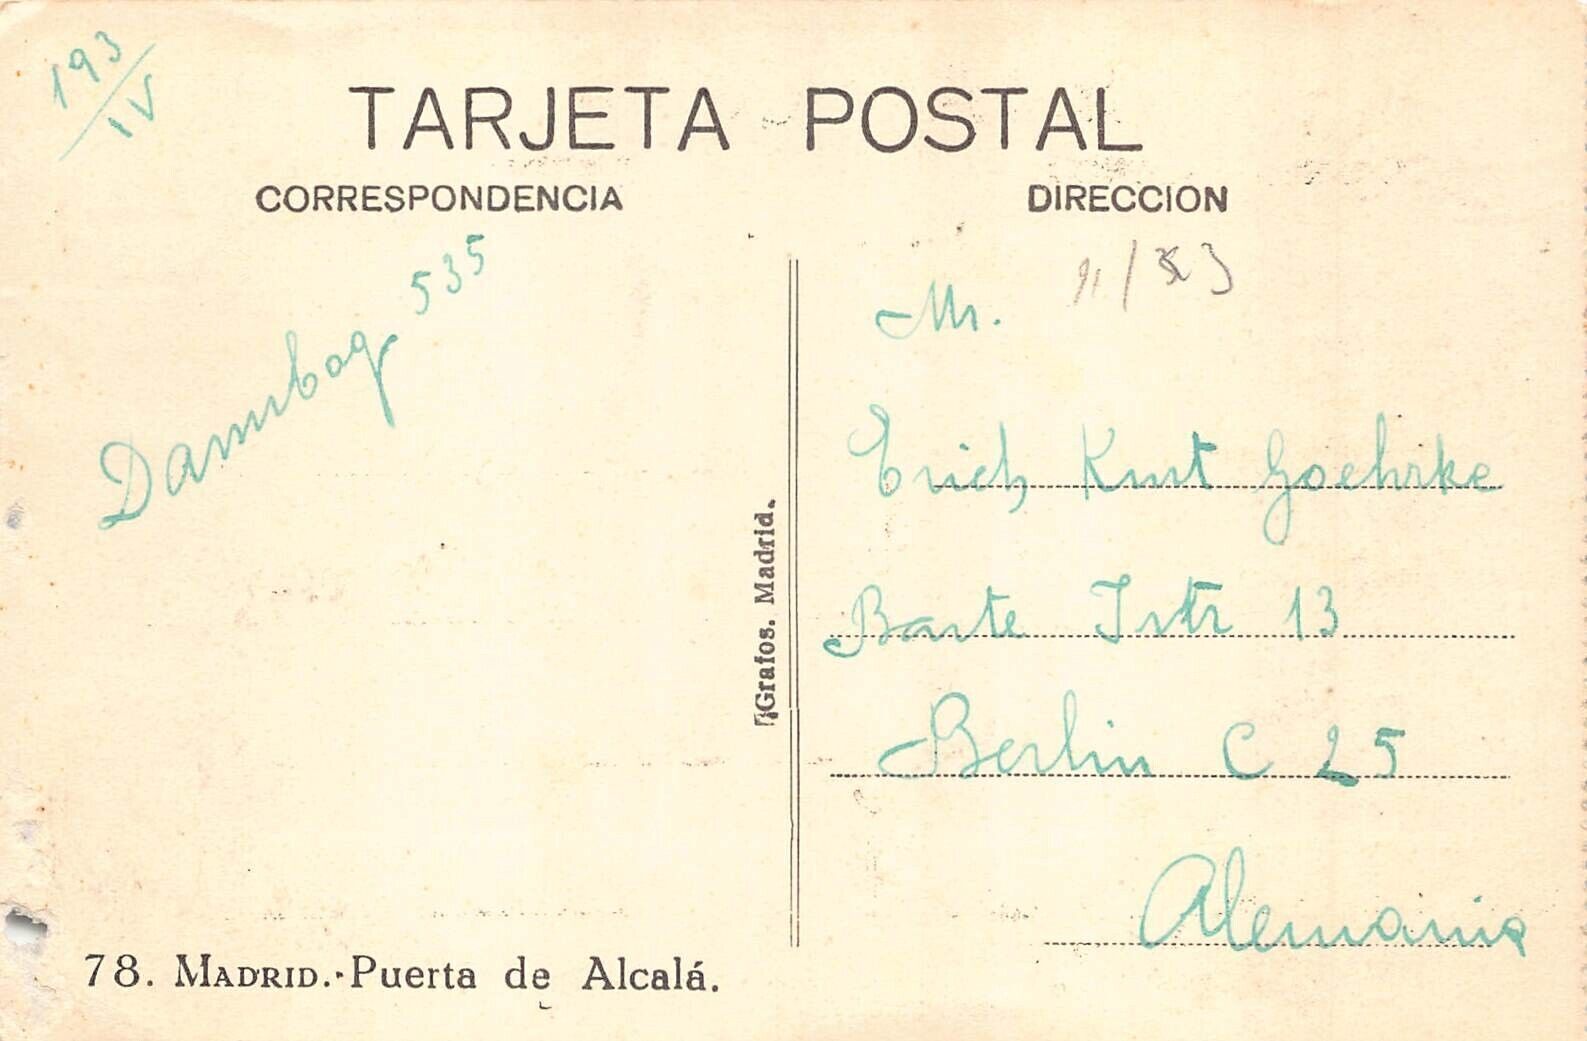 193
IV
TARJETA POSTAL
CORRESPONDENCIA
DIRECCION
535
Mr.
Erich Kurt Goehrke
13
Berlin C 25
Alemania
Grafos. Madrid.
78. MADRID.-Puerta de Alcalá.